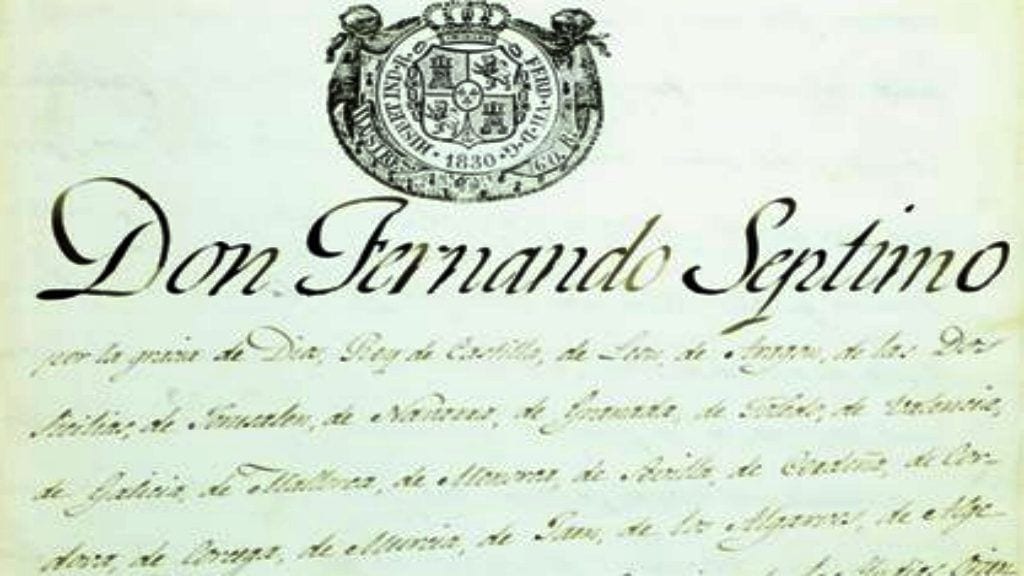 HISP.ET IND.R. FERD.VII.D.G.
1830
Don Fernando Septimo
por la gracia de Dios, Rey de Castilla, de Leon, de Aragon, de las Dos
Sicilias, de Jerusalen, de Navarra, de Granada, de Toledo, de Valencia,
de Galicia, de Mallorca, de Menorca, de Sevilla, de Cerdeña, de Cor-
dova, de Corcega, de Murcia, de Jaen, de los Algarves, de Alge-